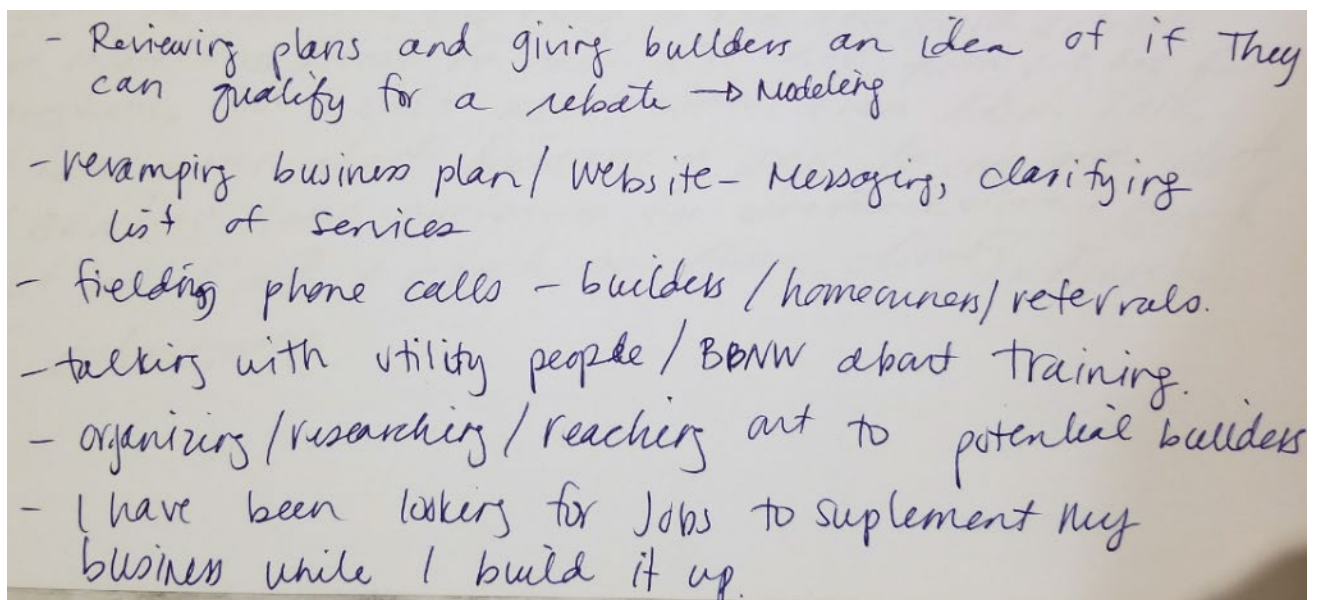 - Reviewing plans and giving builders an idea of if They
can qualify for a rebate → Modeling
- revamping business plan / website - Messaging, clarifying
list of services
- fielding phone calls - builders / homeowners / referrals.
- talking with utility people / BBNW about training.
- organizing / researching / reaching out to potential builders
- I have been looking for Jobs to suplement my
business while I build it up.